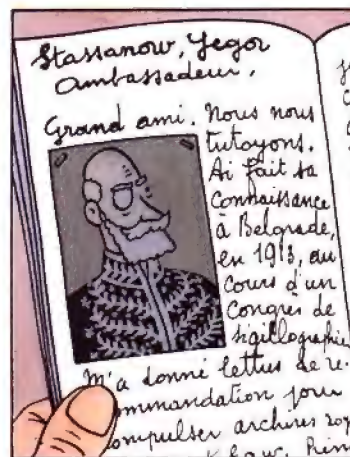 Stassanow, Yegor
Ambassadeur.
Grand ami. Nous nous
tutoyons.
Ai fait sa
connaissance
à Belgrade,
en 1913, au
cours d'un
Congrès de
sigillographie
M'a donné lettres de re-
ommandation pour
ompulser archives roy